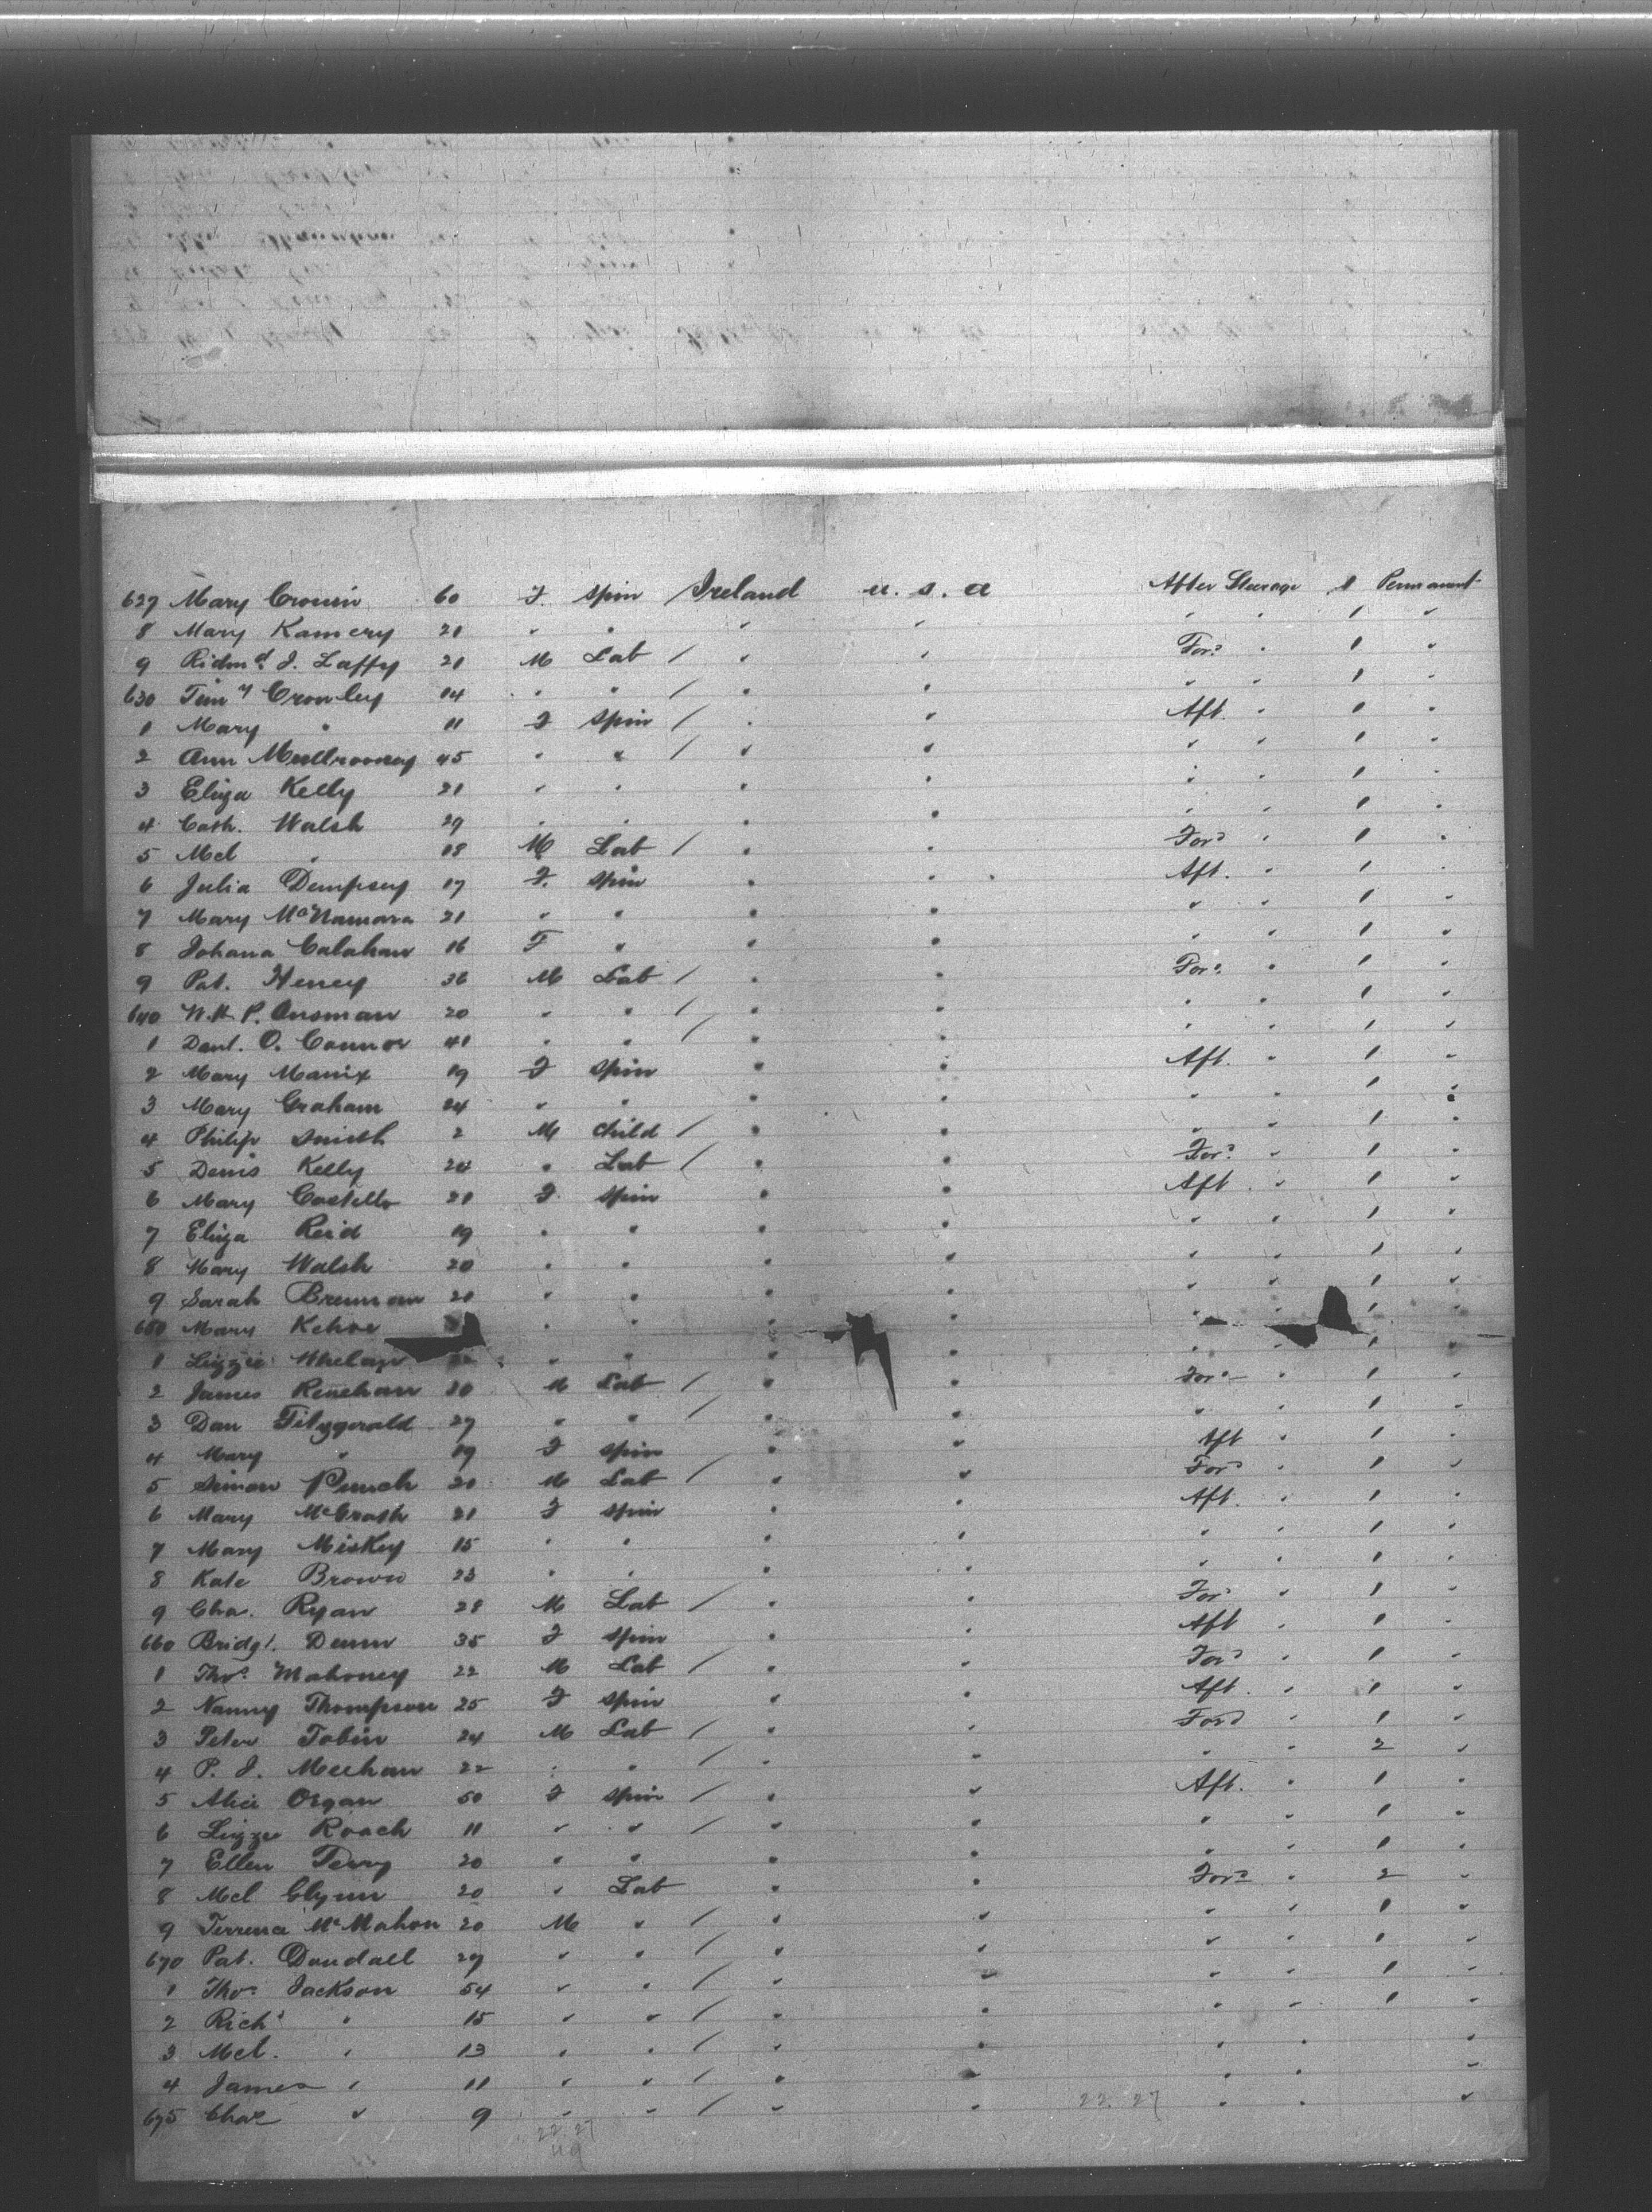 627 Mary Cronin 60 F. Spin / Ireland u. s. a After Steerage 1 Permanent
8 Mary Kamery 21 " " " " " " 1 "
9 Richmd. J. Laffy 21 M Lab / " " Ford " 1 "
630 Timy Crowley 14 " " / " " " " 1 "
1 Mary " 11 F Spin / " " Aft. " 1 "
2 Ann Mullrooney 45 " " / " " " " 1 "
3 Eliza Kelly 21 " " " " " " 1 "
4 Cath. Walsh 29 " " " " " " 1 "
5 Mcl " 18 M Lab / " " Ford " 1 "
6 Julia Dempsey 17 F. Spin " " Aft. " 1 "
7 Mary McNamara 21 " " " " " " 1 "
8 Johana Calahan 16 F " " " " " 1 "
9 Pat. Heney 36 M Lab / " " Ford " 1 "
640 W.H. P. Ansman 20 " " / " " " " 1 "
1 Danl. O. Connor 41 " " / " " " " 1 "
2 Mary Manix 19 F Spin " " Aft. " 1 "
3 Mary Graham 24 " " " " " " 1 "
4 Philip Smith 2 M Child / " " " " 1 "
5 Denis Kelly 20 " Lab / " " Ford " 1 "
6 Mary Costello 21 F Spin " " Aft. " 1 "
7 Eliza Reid 19 " " " " " " 1 "
8 Mary Walsh 20 " " " " " " 1 "
9 Sarah Brennan 20 " " " " " " 1 "
650 Mary Kehoe " " " " " " 1 "
1 Lizzie Whelan " " " " " " 1 "
2 James Renehan 30 M Lab / " " Ford " 1 "
3 Dan Fitzgerald 27 " " / " " " " 1 "
4 Mary " 19 F Spin " " Aft " 1 "
5 Simon Punch 20 M Lab / " " Ford " 1 "
6 Mary McGrath 21 F Spin " " Aft. " 1 "
7 Mary Miskey 15 " " " " " " 1 "
8 Kate Brown 23 " " " " " " 1 "
9 Cha. Ryan 28 M Lab / " " Ford " 1 "
660 Bridgt. Dunn 35 F Spin " " Aft " 1 "
1 Thos. Mahoney 22 M Lab / " " Ford " 1 "
2 Nanny Thompson 25 F Spin " " Aft. " 1 "
3 Peter Tobin 24 M Lab / " " Ford " 1 "
4 P. J. Meehan 22 " " / " " " " 2 "
5 Alice Organ 50 F Spin / " " Aft. " 1 "
6 Lizzie Roach 11 " " / " " " " 1 "
7 Ellen Terry 20 " " " " " " 1 "
8 Mcl Glynn 20 " Lab " " Ford " 2 "
9 Terrence McMahon 20 M " / " " " " 1 "
670 Pat. Dondall 29 " " / " " " " 1 "
1 Thos. Jackson 54 " " / " " " " 1 "
2 Richd " 15 " " / " " " " 1 "
3 Mcl. " 13 " " / " " " " "
4 James " 11 " " / " " " " "
675 Chas " 9 " " / " " " " "
22. 27
22 27
49